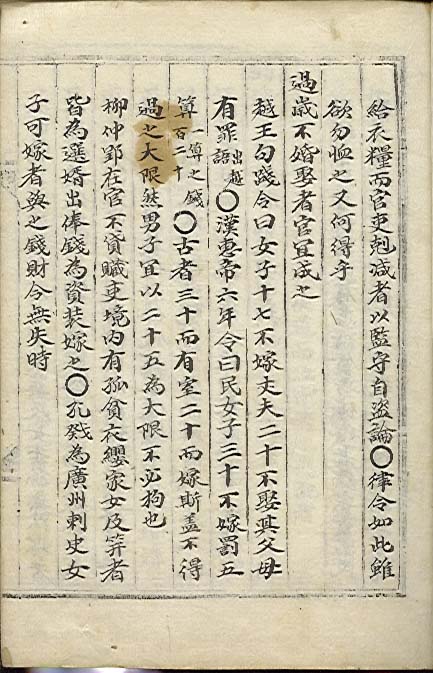 給衣糧而官吏剋減者以監守自盜論○律令如此雖
欲勿恤之又何得乎
過歲不婚娶者官宜成之
越王句踐令曰女子十七不嫁丈夫二十不娶其父母
有罪出越語○漢惠帝六年令曰民女子三十不嫁罰五
算一算之錢百二十○古者三十而有室二十而嫁斯盖不得
過之大限然男子宜以二十五為大限不必拘也
柳仲郢在官不貸贓吏境內有孤貧衣纓家女及笄者
皆為選婿出俸錢為資装嫁之○孔戣為廣州刺史女
子可嫁者與之錢財令無失時